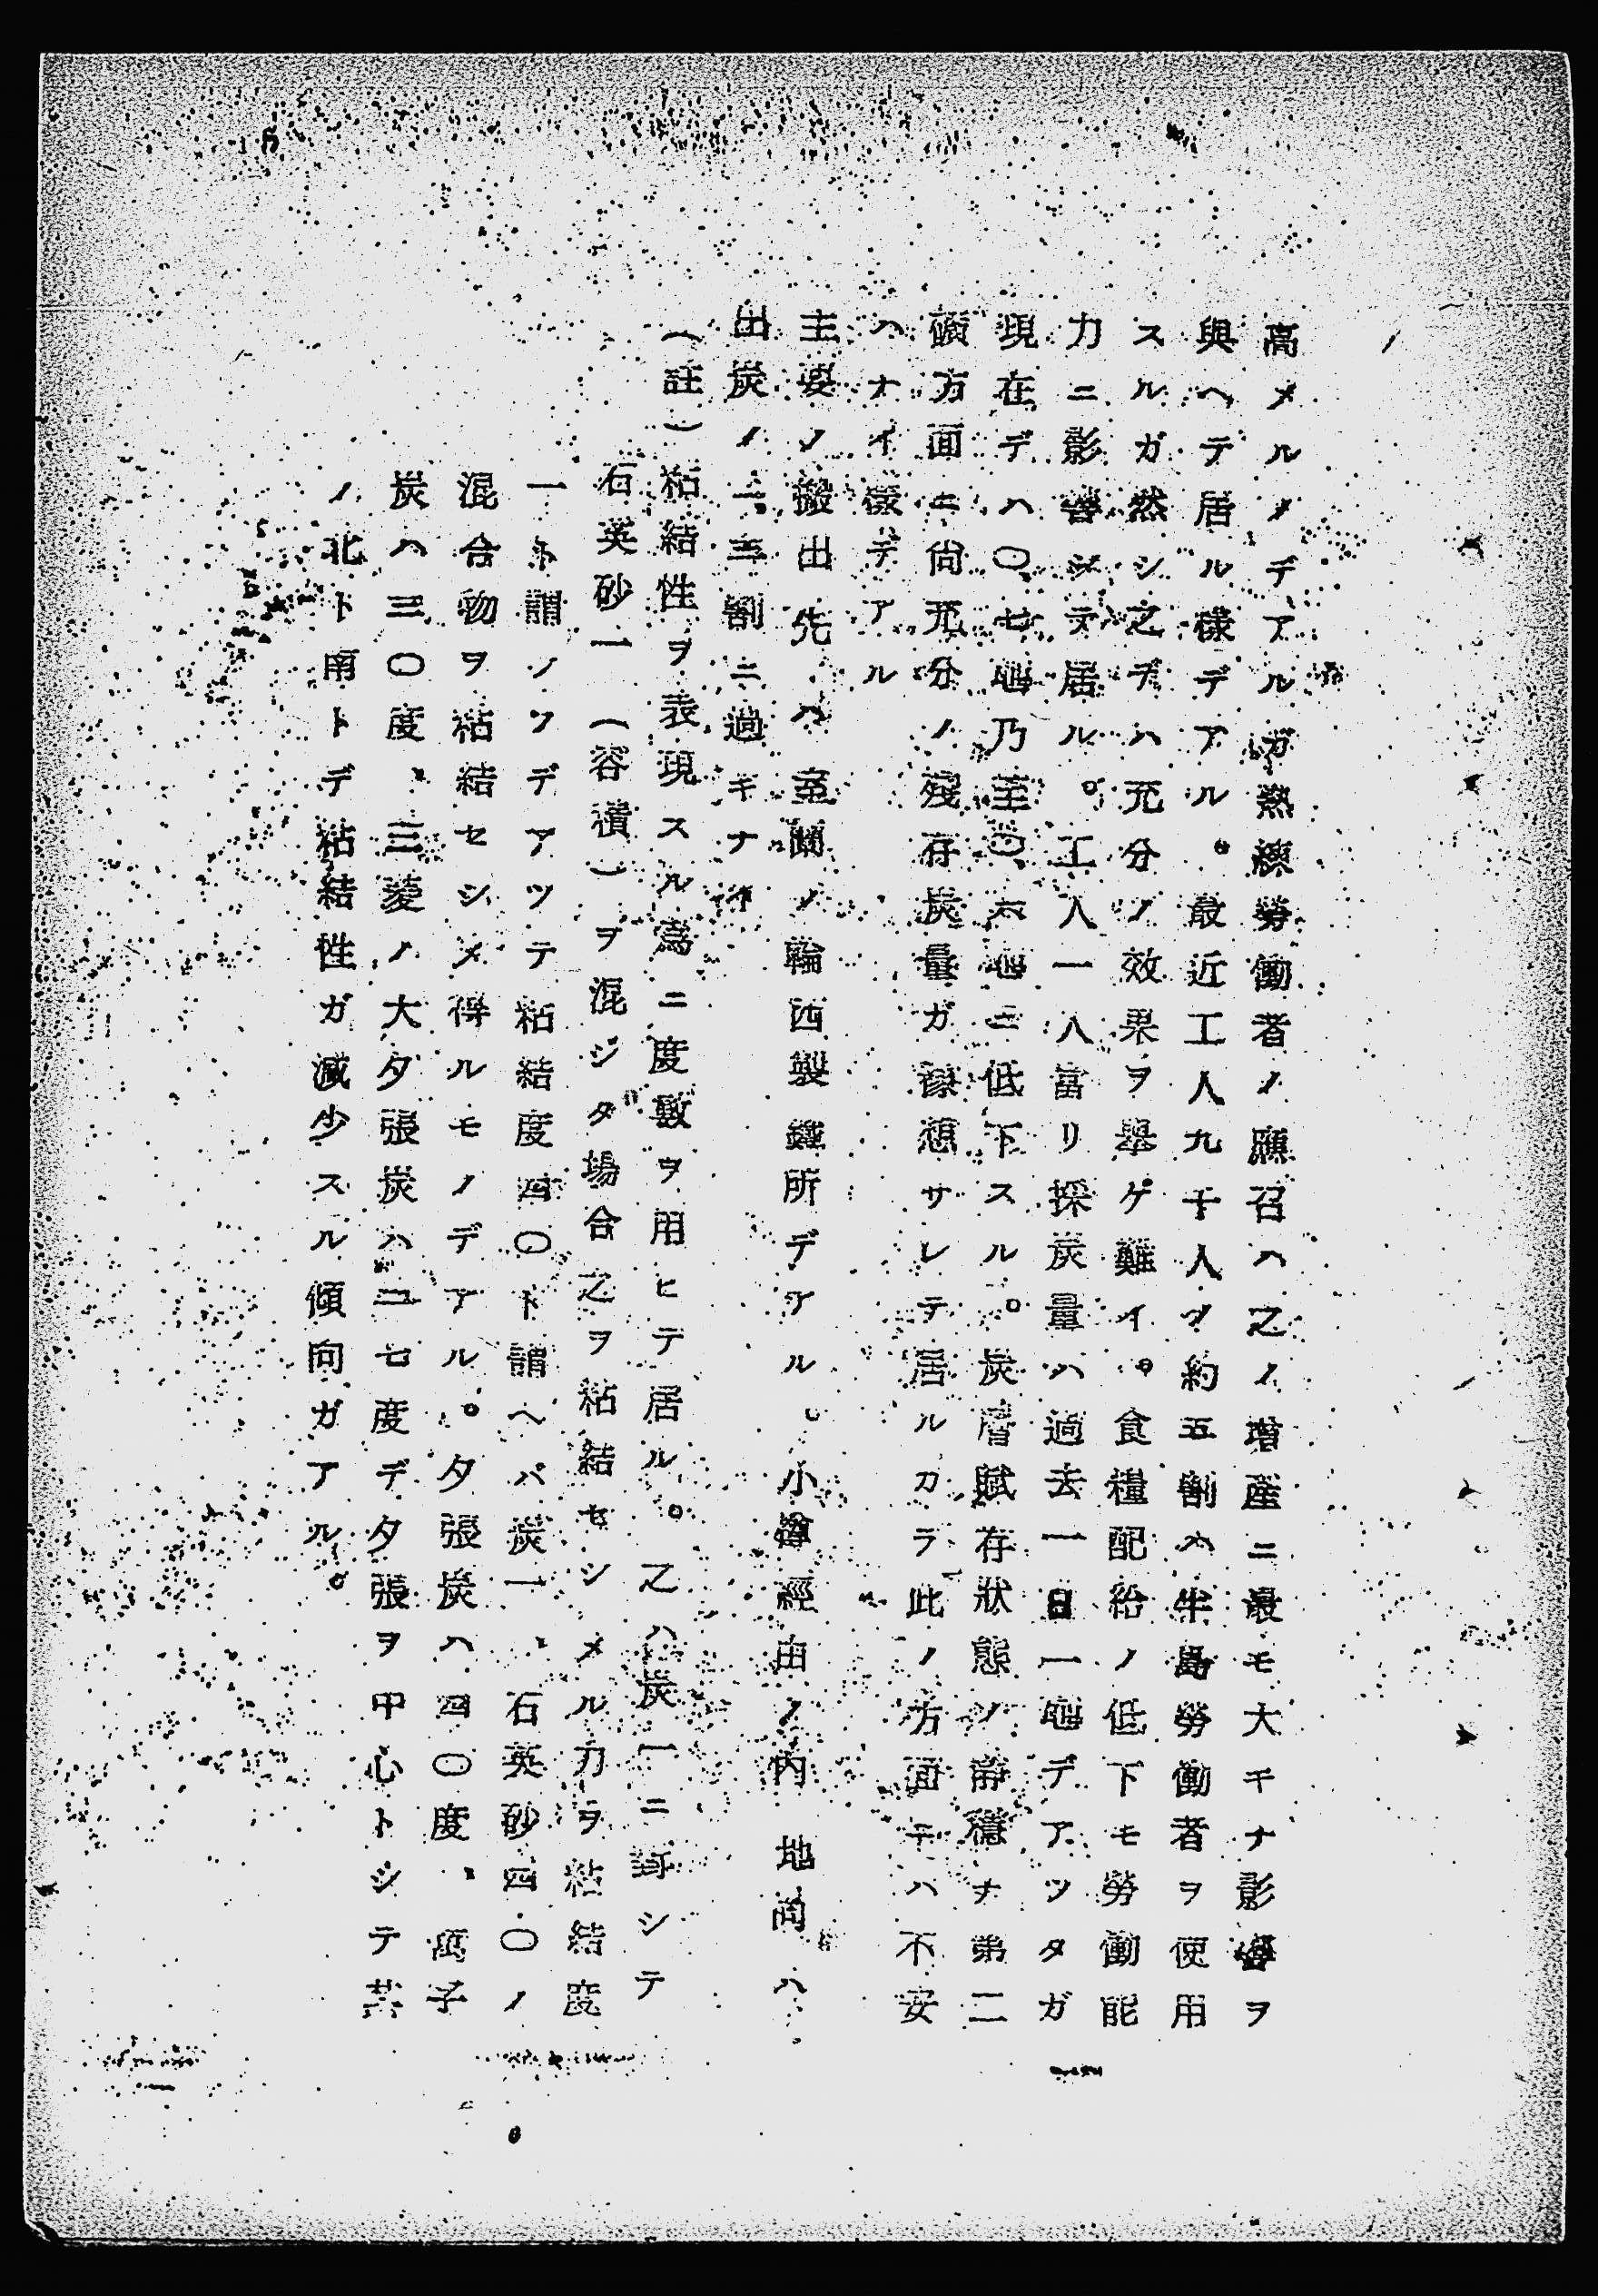 高メルノデアルガ熟練勞働者ノ應召ハ之ノ增産ニ最モ大キナ影響ヲ
與ヘテ居ル樣デアル。最近工人九千人ノ約五割ハ半島勞働者ヲ使用
スルガ然シ之デハ充分ノ效果ヲ擧ゲ難イ。食糧配給ノ低下モ勞働能
力ニ影響シテ居ル。工人一人當リ採炭量ハ過去一日一瓲デアツタガ
現在デハ〇、七瓲乃至〇、六瓲ニ低下スル。炭層賦存狀態ノ平穩ナ第二
礦方面ニ尙充分ノ殘存炭量ガ豫想サレテ居ルカラ此ノ方面デハ不安
ハナイ樣デアル
主要ノ搬出先ハ室蘭ノ輪西製鐵所デアル。小樽經由ノ內地向ハ
出炭ノ二、三割ニ過ギナイ
(註)粘結性ヲ表現スル爲ニ度數ヲ用ヒテ居ル。之ハ炭一ニ對シテ
石英砂一(容積)ヲ混ジタ場合之ヲ粘結セシメル力ヲ粘結度
一ト謂フノデアツテ粘結度四〇ト謂ヘバ炭一、石英砂四〇ノ
混合物ヲ粘結セシメ得ルモノデアル。夕張炭ハ四〇度、眞子
炭ハ三〇度、三菱ノ大夕張炭ハ二七度デ夕張ヲ中心トシテ其
ノ北ト南トデ粘結性ガ減少スル傾向ガアル。